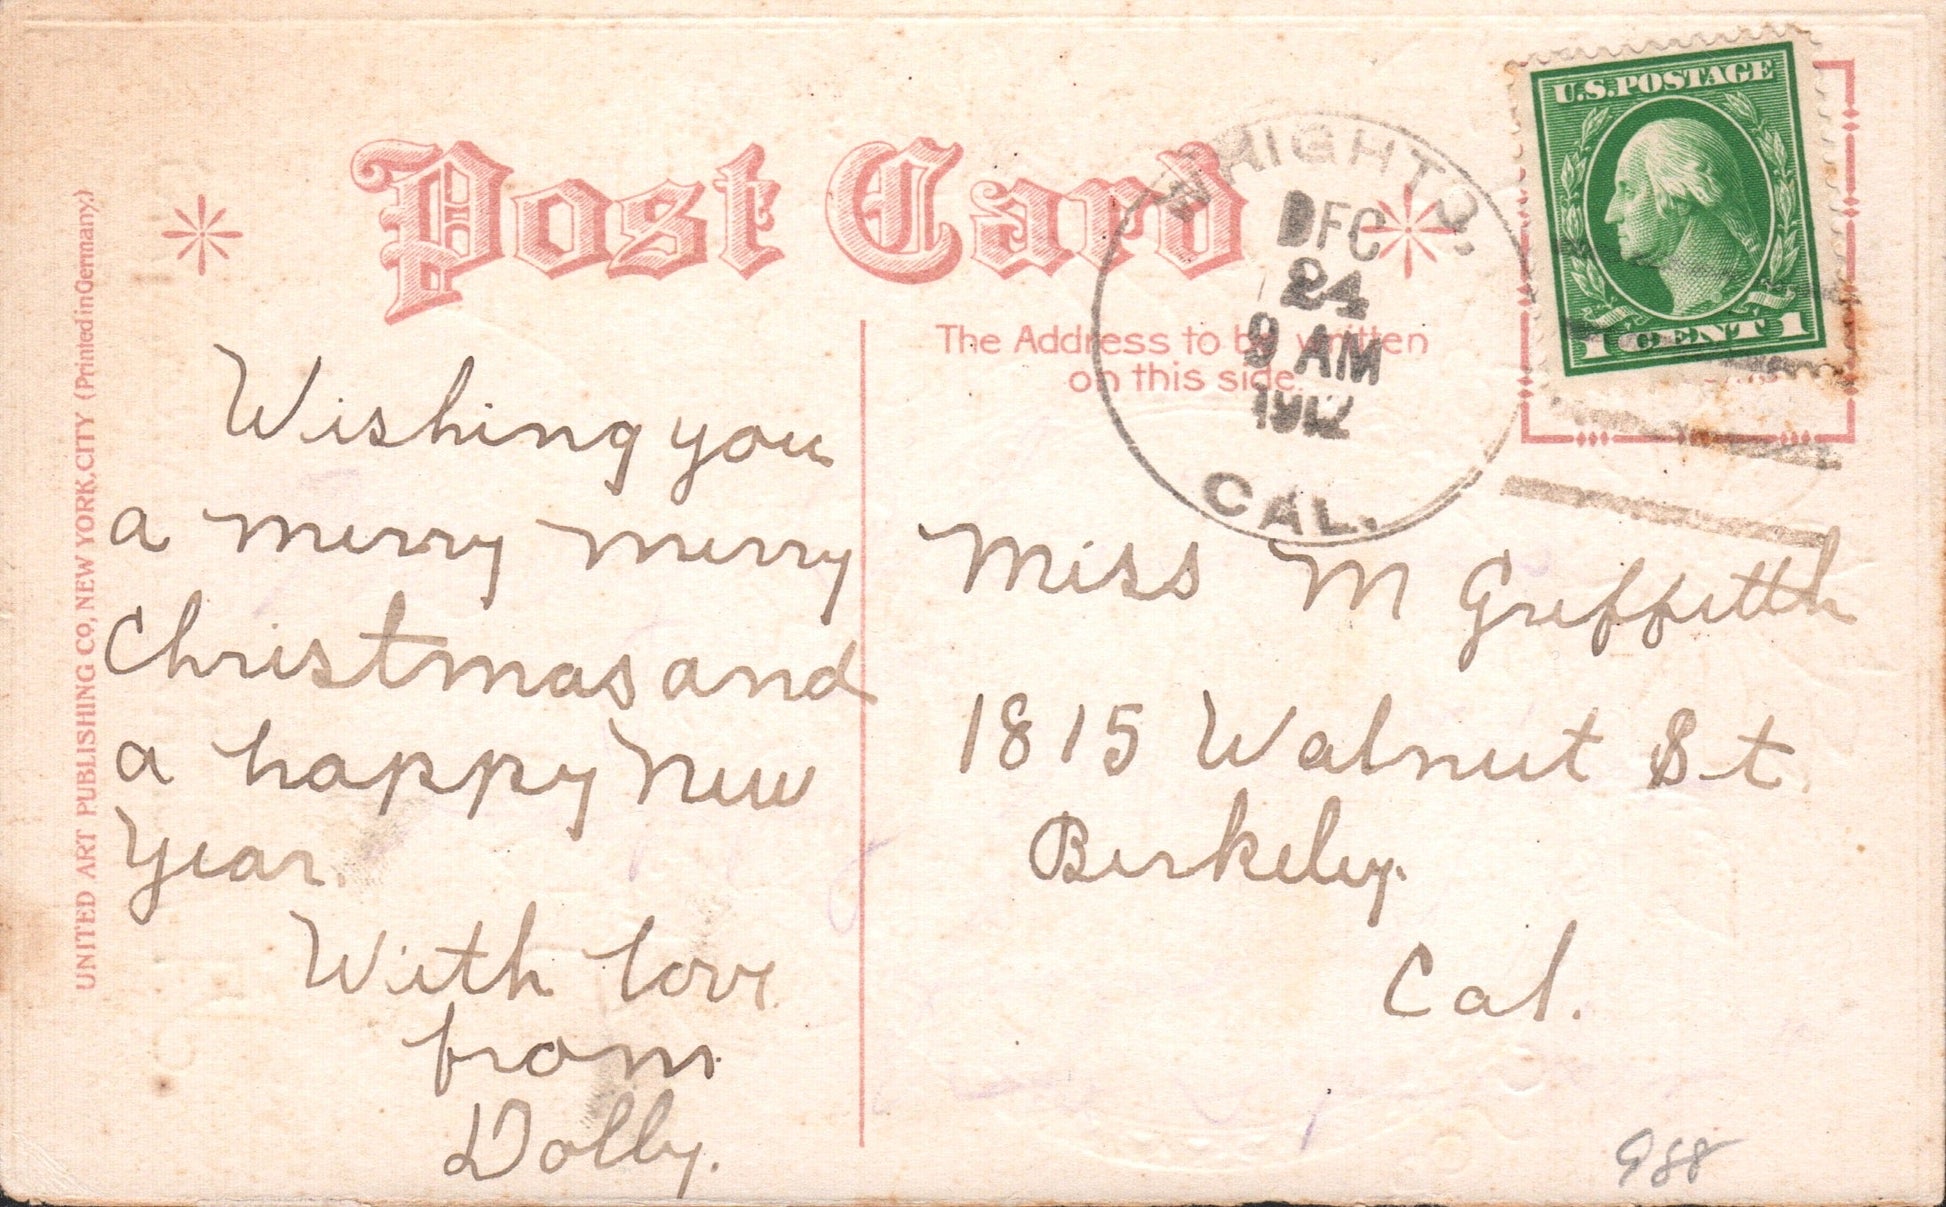 Post Card
The Address to be written
on this side.
UNITED ART PUBLISHING CO., NEW YORK.CITY (Printed in Germany.)
WRIGHTS,
DEC
24
9 AM
1912
CAL.
U.S.POSTAGE
1 CENT 1
Wishing you
a merry merry
Christmas and
a happy New
Year.
With love
from
Dolly.
Miss M Griffitth
1815 Walnut St.
Berkeley.
Cal.
988